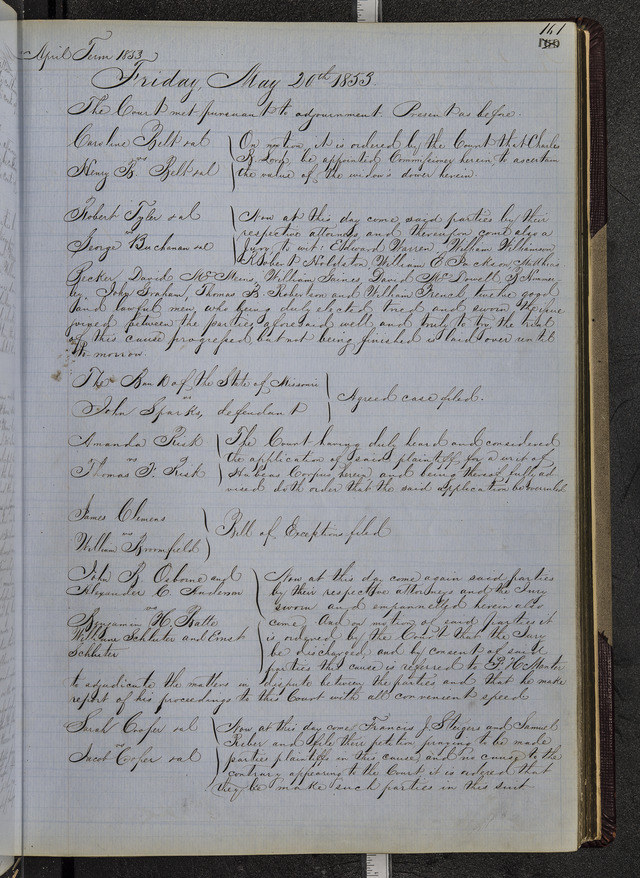 161
159
April Term 1853
Friday, May 20th 1853.
The Court met pursuant to adjournment. Present as before.
Caroline Belt et al
vs
Henry B. Belt et al
On motion, it is ordered by the Court that Charles
B. Lord be appointed Commissioner herein to ascertain
the value of the widow's dower herein.
Robert Tyler et al
vs
George Buchanan et al
Now at this day come said parties by their
respective attorneys and thereupon come also a
Jury to wit: Edward Warren William Wilkinson
Robert William E Jackson Mathias
Becker, David William Gaines David McDowell
John Graham, Thomas B. Robertson and William French, twelve good
and lawful men, who being duly elected tried and sworn the issue
joined between the parties aforesaid well and truly to try the trial
of this cause progressed, but not being finished is laid over until
to morrow.
The Bank of the State of Missouri
vs
John Sparks, defendant
Agreed case filed.
Amanda Risk
vs
Thomas F. Risk
The Court having duly heard and considered
the application of said plaintiff for a writ of
Habeas Corpus herein and being thereof fully ad
vised doth order that the said application be overruled.
James Clemens
vs
William Broomfield
Bill of Exceptions filed
John B. Osborne and
Alexander C. Anderson
vs
Benjamin H. Batte
William Schluter and Ernst
Schluter
Now at this day come again said parties
by their respective attorneys and the Jury
sworn and empannelled herein also
come. And on motion of said parties it
is ordered by the Court that the Jury
be discharged, and by consent of said
parties this cause is referred to
to adjudicate the matters in dispute between the parties and that he make
report of his proceedings to this Court with all convenient speed
Sarah Cooper et al
vs
Jacob Cooper et al
Now at this day come Francis J. Steigers and Samuel
Reber and file their petition praying to be made
parties plaintiffs in this cause, and no cause to the
contrary appearing to the Court it is ordered that
they be made such parties in this suit